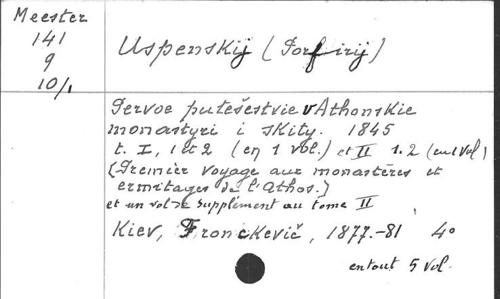 Meester
141
9
10/1
Uspenskij (Porfirij)
Pervoe putešestvie v Athonskie
monastyri i skity. 1845
t. I, 1 et 2 (en 1 vol.) et II 1.2 (en 1 vol)
(Premier voyage aux monastères et
ermitages de l'Athos.)
et un vol de supplément au tome II
Kiev, Fronckevič, 1877.-81 4°
en tout 5 vol.